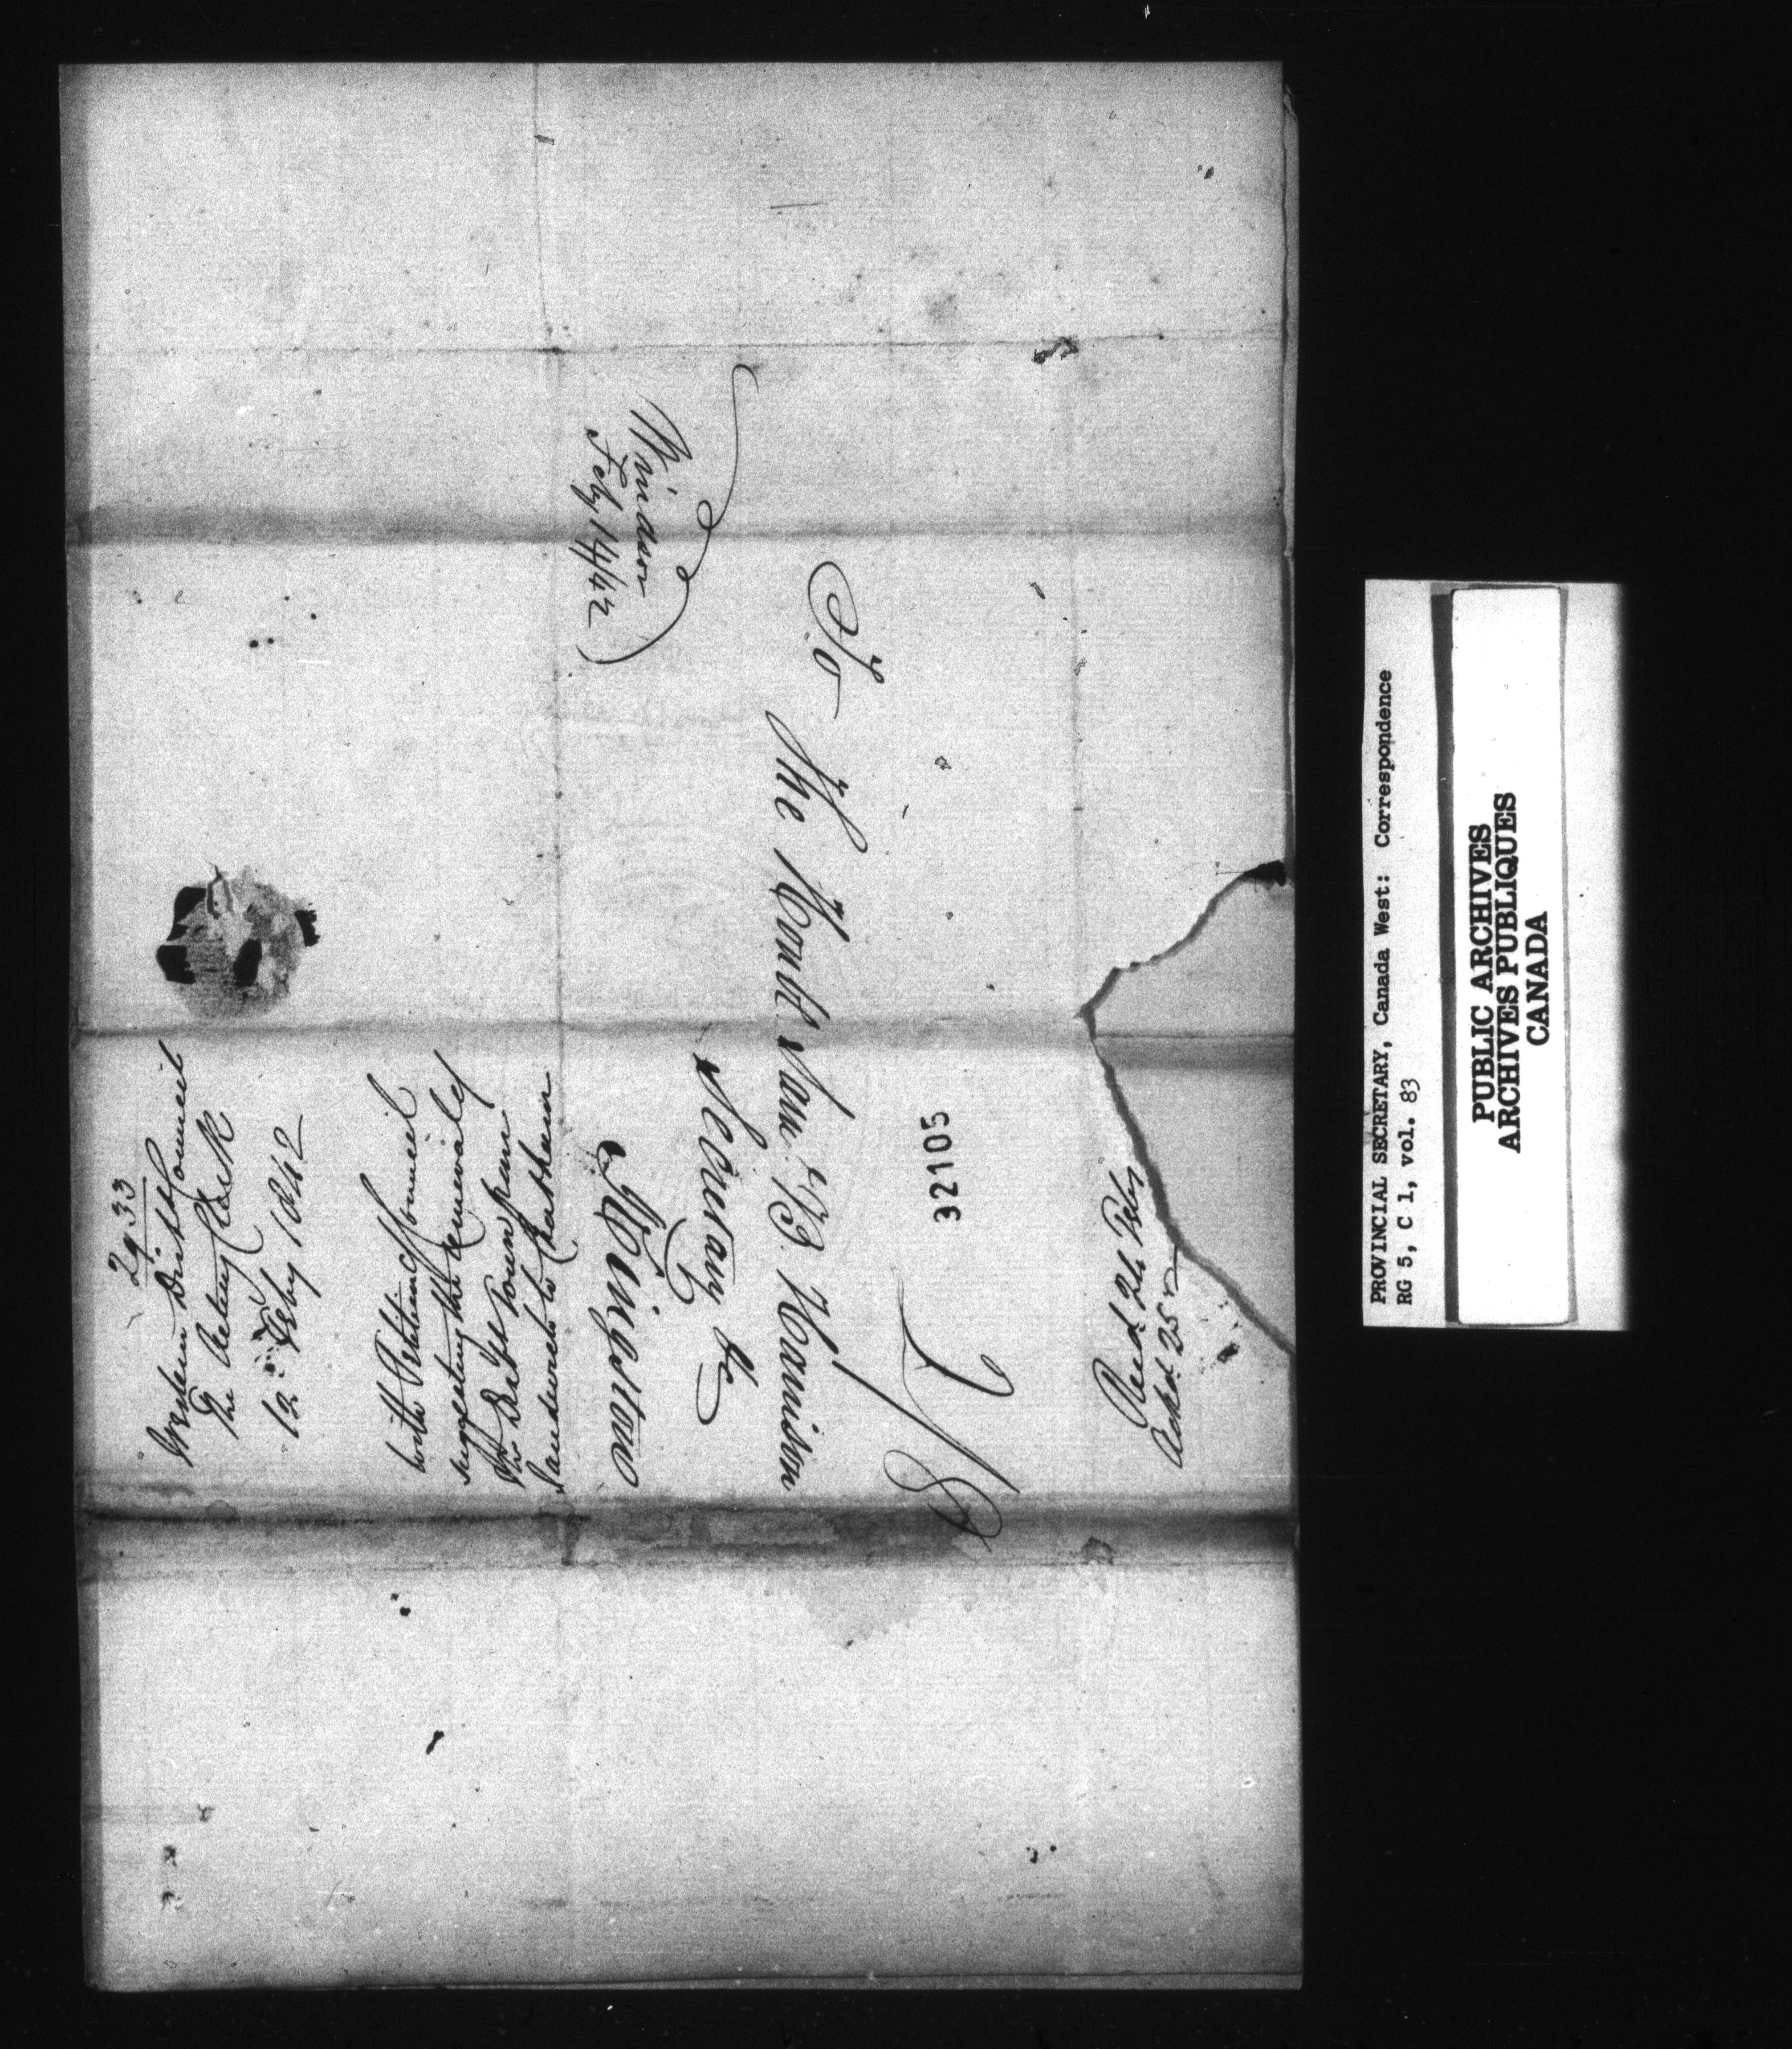 Windsor
Feby 14/42
To The Honble Saml. B. Harrison
Secretary &c
Kingston
1/8
2933
Western Dist Council
The Acting Clerk
12. Feby 1842
with Petition of Council
suggesting the removal of
the Dist Town from
Sandwich to Chatham
32105
Recd 24 Feby
Ackd 25
PROVINCIAL SECRETARY, Canada West: Correspondence
RG 5, C 1, vol. 83
PUBLIC ARCHIVES
ARCHIVES PUBLIQUES
CANADA